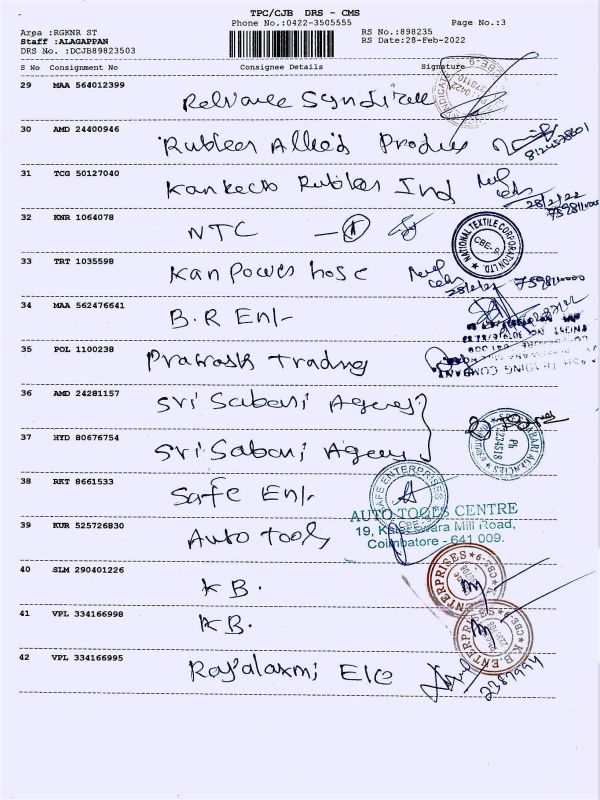 TPC/CJB DRS - CMS
Phone No.:0422-3505555 Page No.:3
Area :RGKNR ST RS No.:898235
Staff :ALAGAPPAN RS Date:28-Feb-2022
DRS No. :DCJB89823503
S No Consignment No Consignee Details Signature
29 MAA 564012399
Reliance Syndicate
30 AMD 24400946
Rubber Allied Produc
8124578601
31 TCG 50127040
Kankecto Rubber Ind
28/2/22
32 KNR 1064078
NTC
NATIONAL TEXTILE CORPORATION LTD. CBE-9
33 TRT 1035598
Kanpower hose
28/2/22
34 MAA 562476641
B.R Ent-
35 POL 1100238
Prakash Trading
36 AMD 24281157
Sri Sabari Agency
37 HYD 80676754
Sri Sabari Agency
38 RKT 8661533
Safe Ent-
SAFE ENTERPRISES CBE
39 KUR 525726830
Auto tools
AUTO TOOLS CENTRE
19, Kaleeswara Mill Road,
Coimbatore - 641 009.
40 SLM 290401226
K B.
ENTERPRISES CBE-9
41 VPL 334166998
K B.
K.B. ENTERPRISES
42 VPL 334166995
Rajalaxmi Ele